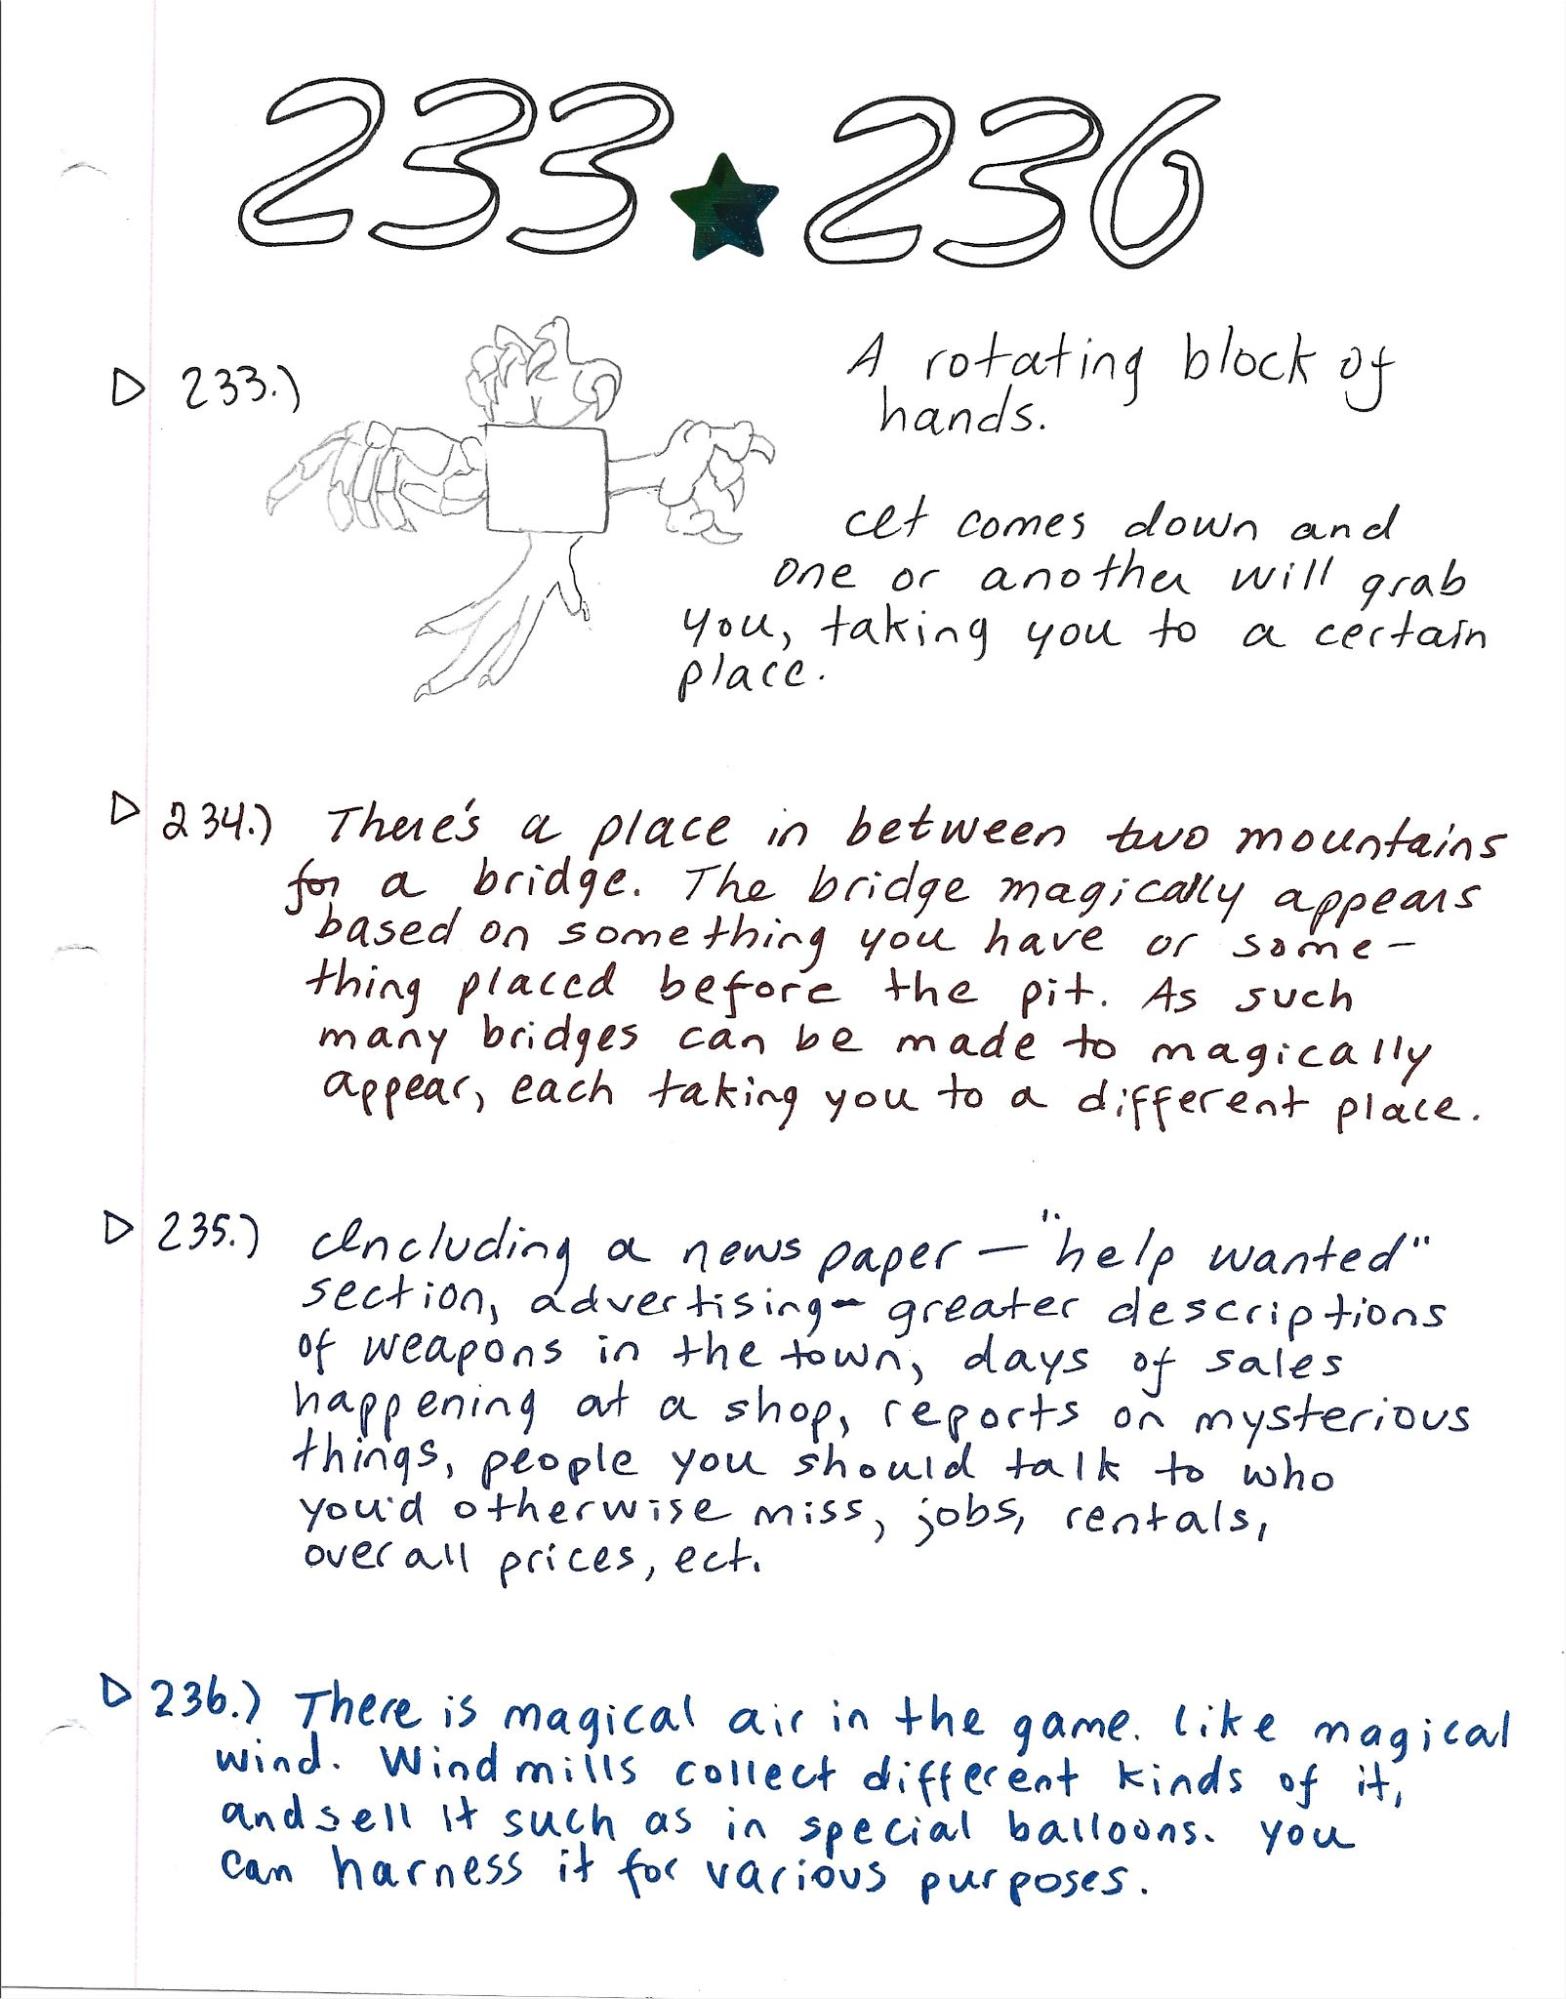 233 236
233.) A rotating block of
hands.
It comes down and
one or another will grab
you, taking you to a certain
place.
234.) There's a place in between two mountains
for a bridge. The bridge magically appears
based on something you have or some-
thing placed before the pit. As such
many bridges can be made to magically
appear, each taking you to a different place.
235.) Including a news paper — "help wanted"
section, advertising - greater descriptions
of weapons in the town, days of sales
happening at a shop, reports on mysterious
things, people you should talk to who
you'd otherwise miss, jobs, rentals,
over all prices, ect.
236.) There is magical air in the game. like magical
wind. Windmills collect different kinds of it,
and sell it such as in special balloons. you
can harness it for various purposes.